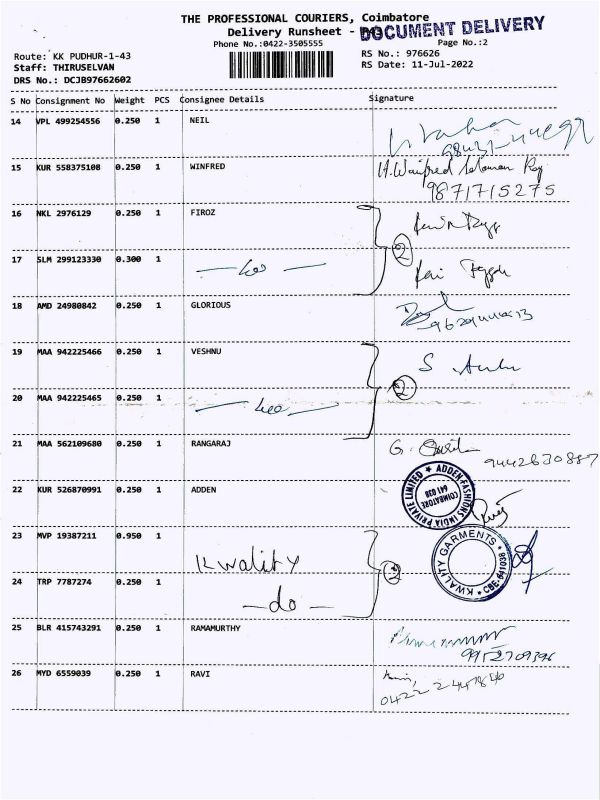 THE PROFESSIONAL COURIERS, Coimbatore
Delivery Runsheet -
DOCUMENT DELIVERY
Phone No.:0422-3505555
Page No.:2
Route: KK PUDHUR-1-43
RS No.: 976626
Staff: THIRUSELVAN
RS Date: 11-Jul-2022
DRS No.: DCJB97662602
S No Consignment No Weight PCS Consignee Details Signature
14 VPL 499254556 0.250 1 NEIL
15 KUR 558375108 0.250 1 WINFRED
9871715275
16 NKL 2976129 0.250 1 FIROZ
2
17 SLM 299123330 0.300 1
18 AMD 24980842 0.250 1 GLORIOUS
19 MAA 942225466 0.250 1 VESHNU
2
20 MAA 942225465 0.250 1
21 MAA 562109680 0.250 1 RANGARAJ
9442630887
22 KUR 526870991 0.250 1 ADDEN
ADDEN FASHIONS INDIA PRIVATE LIMITED
COIMBATORE
641 038
23 MVP 19387211 0.950 1 Kwality
2
KWALITY GARMENTS
CBE-641038
24 TRP 7787274 0.250 1 -do-
25 BLR 415743291 0.250 1 RAMAMURTHY
26 MYD 6559039 0.250 1 RAVI